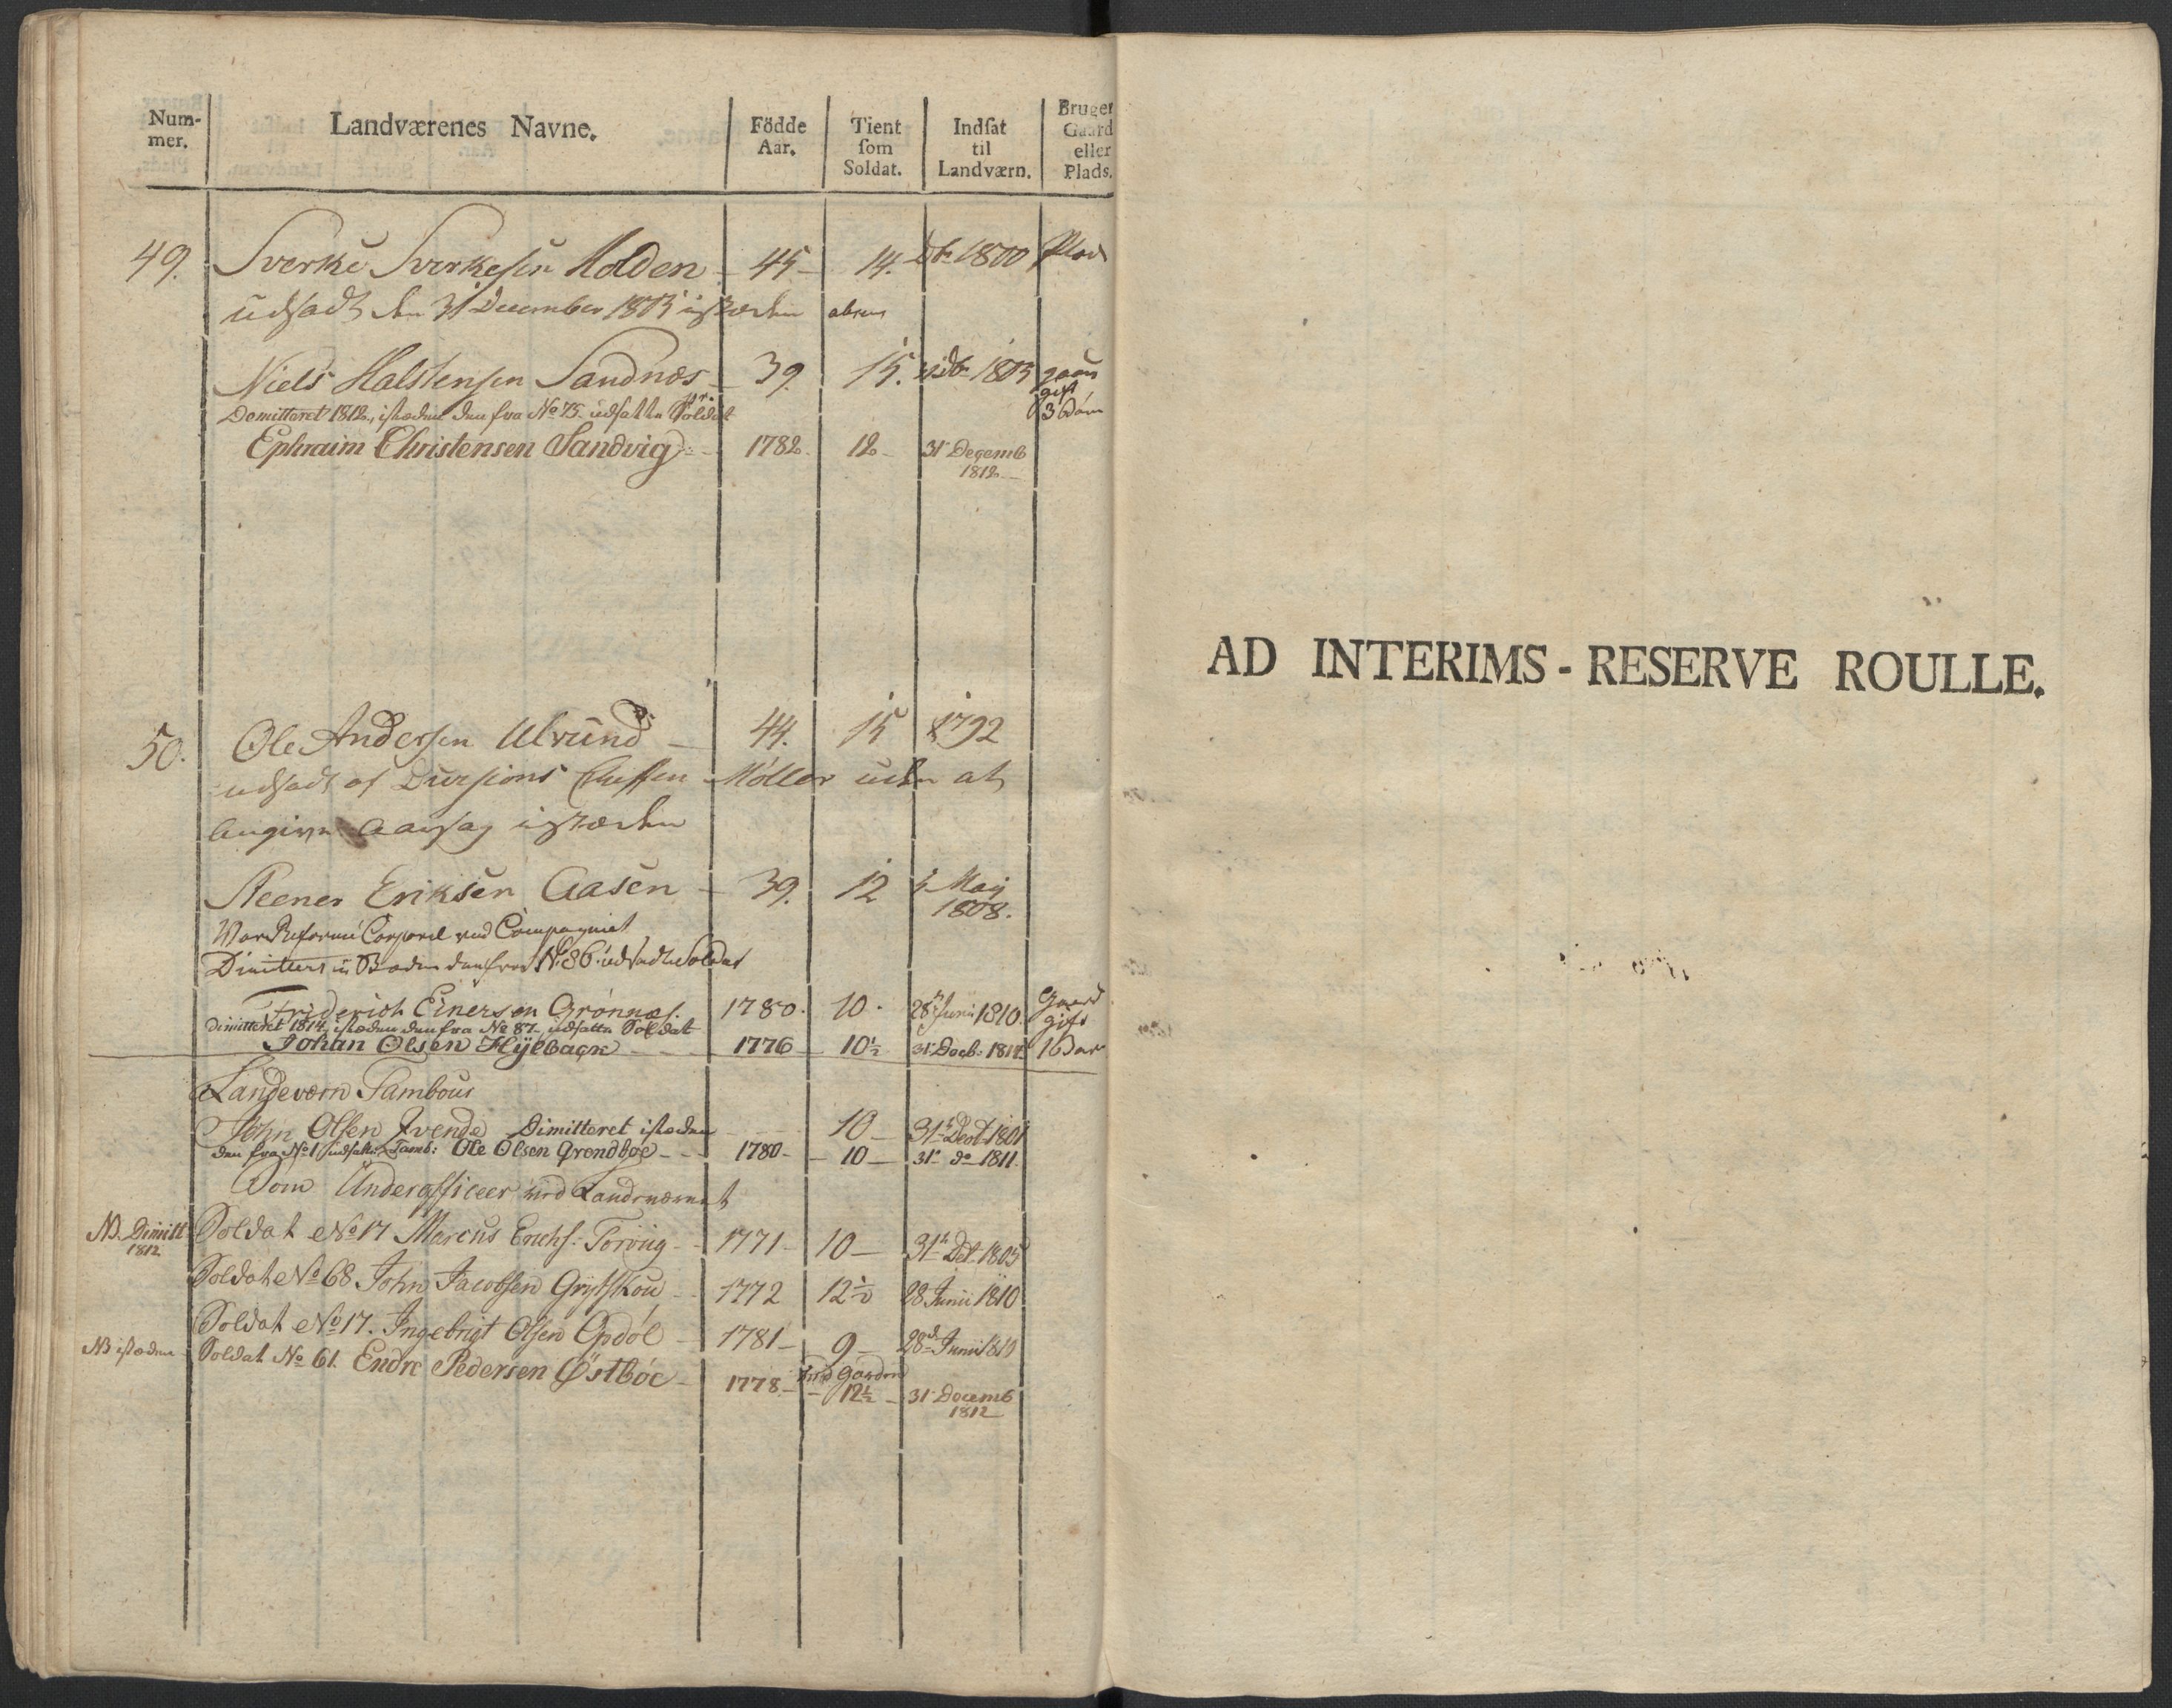 Num-
mer.
Landværenes Navne.
Födde
Aar.
Tient
som
Soldat.
Indsat
til
Landværn.
Bruger
Gaard
eller
Plads.
49. Sverke Sverkesen Molden 45 14. 1800 Plads
udsadt den 31 December 1803 istæden
Niels Halstensen Sandnæs 39. 15. 1803
Demitteret 1812, istæden den fra No 75 udsatte Soldat
Ephraim Christensen Sandvig 1782. 12 31 Decemb
1812
50. Ole Andersen Ulvund 44. 15 1792
udsadt af Divisions Cheffen Möller uden at
angive Aarsag istæden
Steener Eriksen Aasen 39. 12 Maij
1808.
War Reformé Corporal ved Compagniet
No 86 udsadte Soldat
Friderich Einersen Grönnæs. 1780. 10. 28 Junii 1810 Gaard
gift
dimitteret 1814, istæden den fra No 87 udsatte Soldat
Johan Olsen Hÿlbach 1776 10½ 31 Decb. 1814 1 Barn
Landeværn Tambour
John Olsen Dimitteret istæden 10 31 1801
den fra No 1 udsatte Tamb: Ole Olsen Grendböe 1780 10 31 do 1811
Som Underofficeer ved Landeværnet
NB. Dimitt
1812
Soldat No 17 Marcus Erichs: Torvig 1771 10 31 1805
Soldat No 68 John Jacobsen Grytskou 1772 12½ 28 Junii 1810
Soldat No 17. Ingebrigt Olsen Opdöl 1781 9 28 Junii 1810
NB istæden Soldat No 61. Endre Pedersen Östböe 1778 12½ 31 Decemb
1812
AD INTERIMS-RESERVE ROULLE.